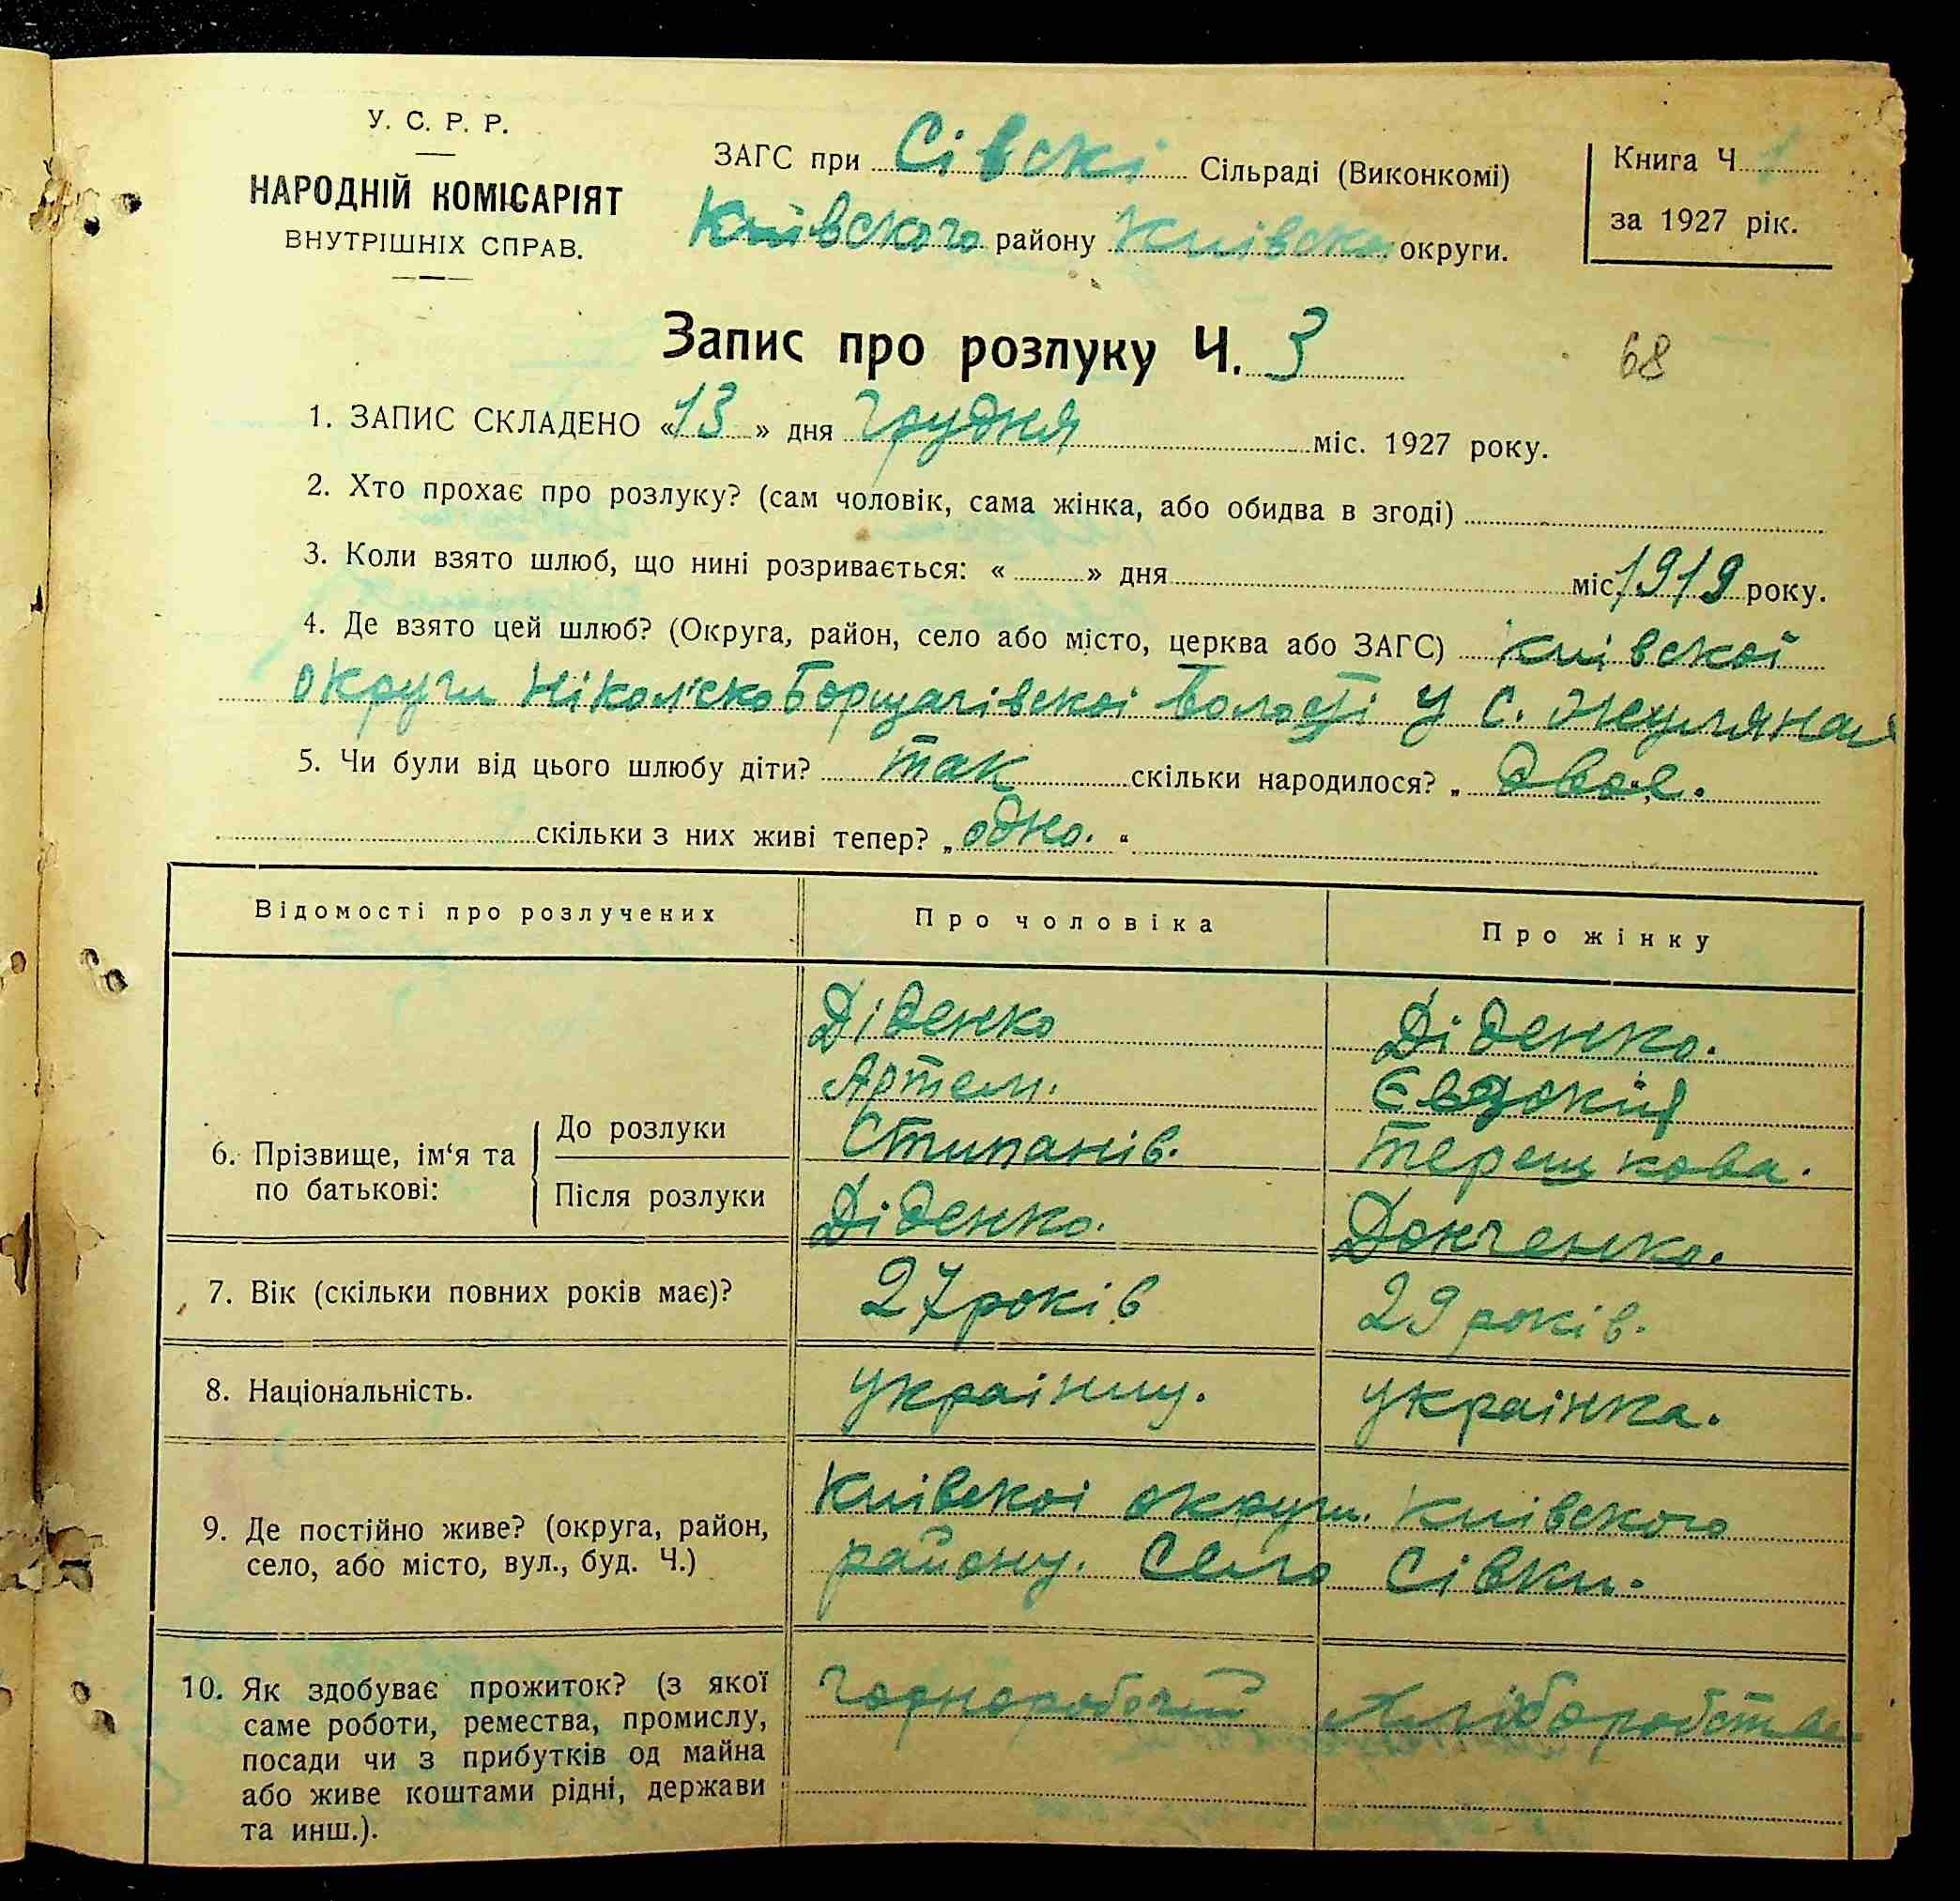 У. С. Р. Р.
НАРОДНІЙ КОМІСАРІЯТ
ВНУТРІШНІХ СПРАВ.
ЗАГС при Сівскі Сільраді (Виконкомі)
Київского району Київско округи.
Книга Ч. 1
за 1927 рік.
Запис про розлуку Ч. 3
68
1. ЗАПИС СКЛАДЕНО «13» дня грудня міс. 1927 року.
2. Хто прохає про розлуку? (сам чоловік, сама жінка, або обидва в згоді)
3. Коли взято шлюб, що нині розривається: « » дня міс. 1919 року.
4. Де взято цей шлюб? (Округа, район, село або місто, церква або ЗАГС) київскої
округи Ніколʼско Борщагівскоі волості у с. Жулянах
5. Чи були від цього шлюбу діти? так скільки народилося? „ двое.
скільки з них живі тепер? „одно. “
Відомості про розлучених Про чоловіка Про жінку
6. Прізвище, ім‘я та по батькові:
До розлуки
Діденко Діденко.
Артем. Євдокия
Стипанів. Терешкова.
Після розлуки
Діденко. Донченко.
7. Вік (скільки повних років має)? 27 років 29 років.
8. Національність. украінец. украінка.
9. Де постійно живе? (округа, район,
село, або місто, вул., буд. Ч.)
Київскоі округи. Київского
району. Село Сівки.
10. Як здобуває прожиток? (з якої
саме роботи, ремества, промислу,
посади чи з прибутків од майна
або живе коштами рідні, держави
та инш.).
Чорноробочий Хліборобства